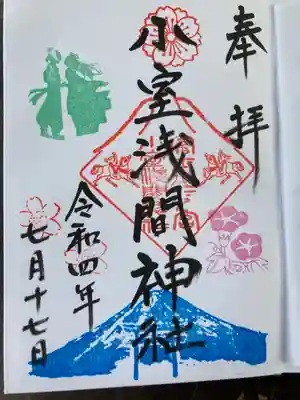 奉拝
小室浅間神社
令和四年
七月十七日